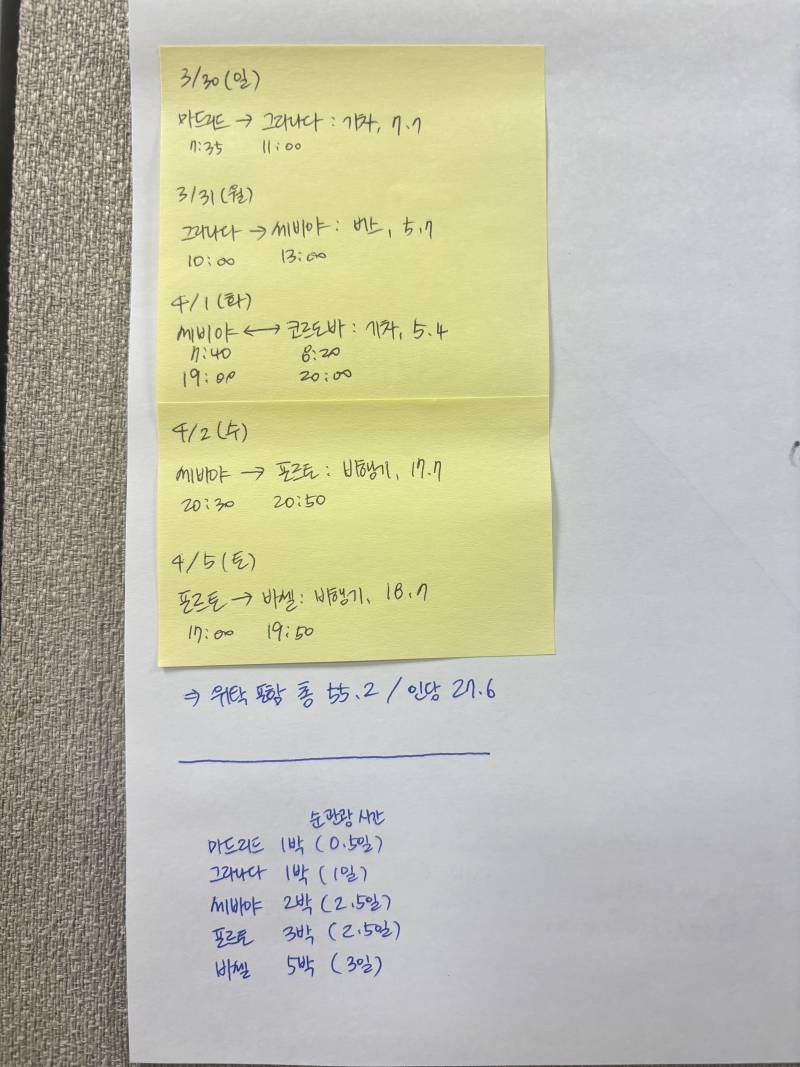 3/30(일)
마드리드 → 그라나다 : 기차, 7.7
7:35 11:00
3/31(월)
그라나다 → 세비야 : 버스, 5.7
10:00 13:00
4/1(화)
세비야 ↔ 코르도바 : 기차, 5.4
7:40 8:20
19:00 20:00
4/2(수)
세비야 → 포르토 : 비행기, 17.7
20:30 20:50
4/5(토)
포르토 → 바첼 : 비행기, 18.7
17:00 19:50
⇒ 위탁 포함 총 55.2 / 인당 27.6
순관광 시간
마드리드 1박 (0.5일)
그라나다 1박 (1일)
세비야 2박 (2.5일)
포르토 3박 (2.5일)
바첼 5박 (3일)